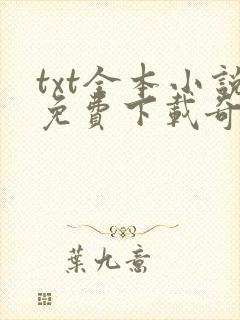 txt全本小說
免費下載奇
葉九意